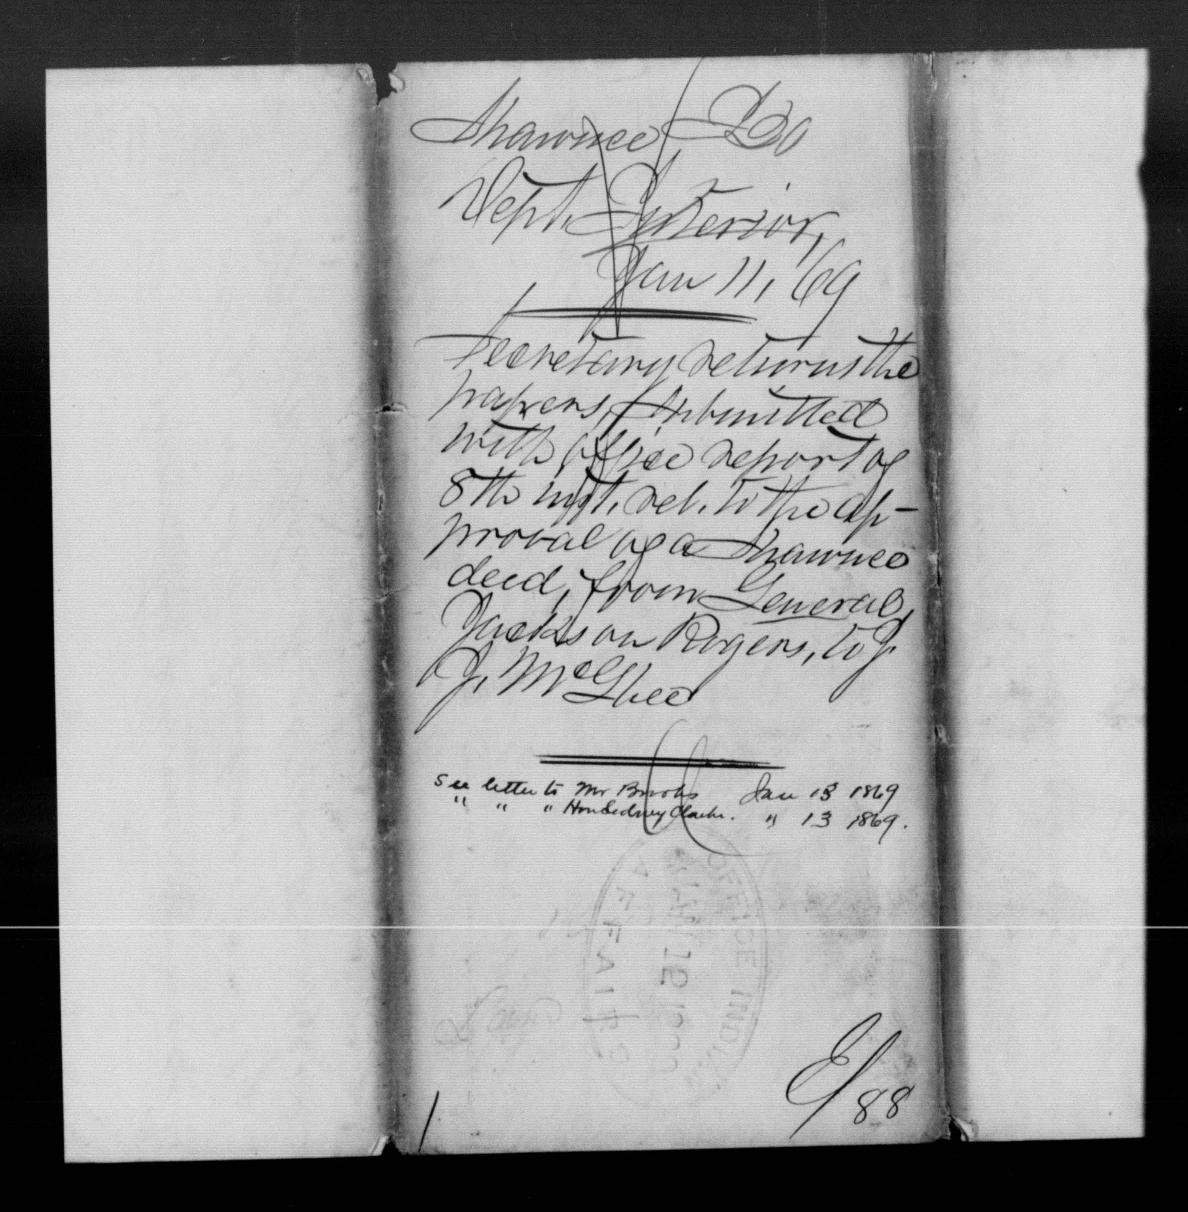 Shawnee
Dept. Interior,
Jan 11, 69
Secretary returns the
papers, submitted
with office report of
8th inst. rel. to the ap-
proval of a Shawnee
deed, from General
Jackson Rogers, to J.
J. McGhee
See letter to Mr Brooks Jan 13 1869
" " " Hon Sidney Clarke. " 13 1869.
OFFICE INDIAN
AFFAIRS
E/88
1